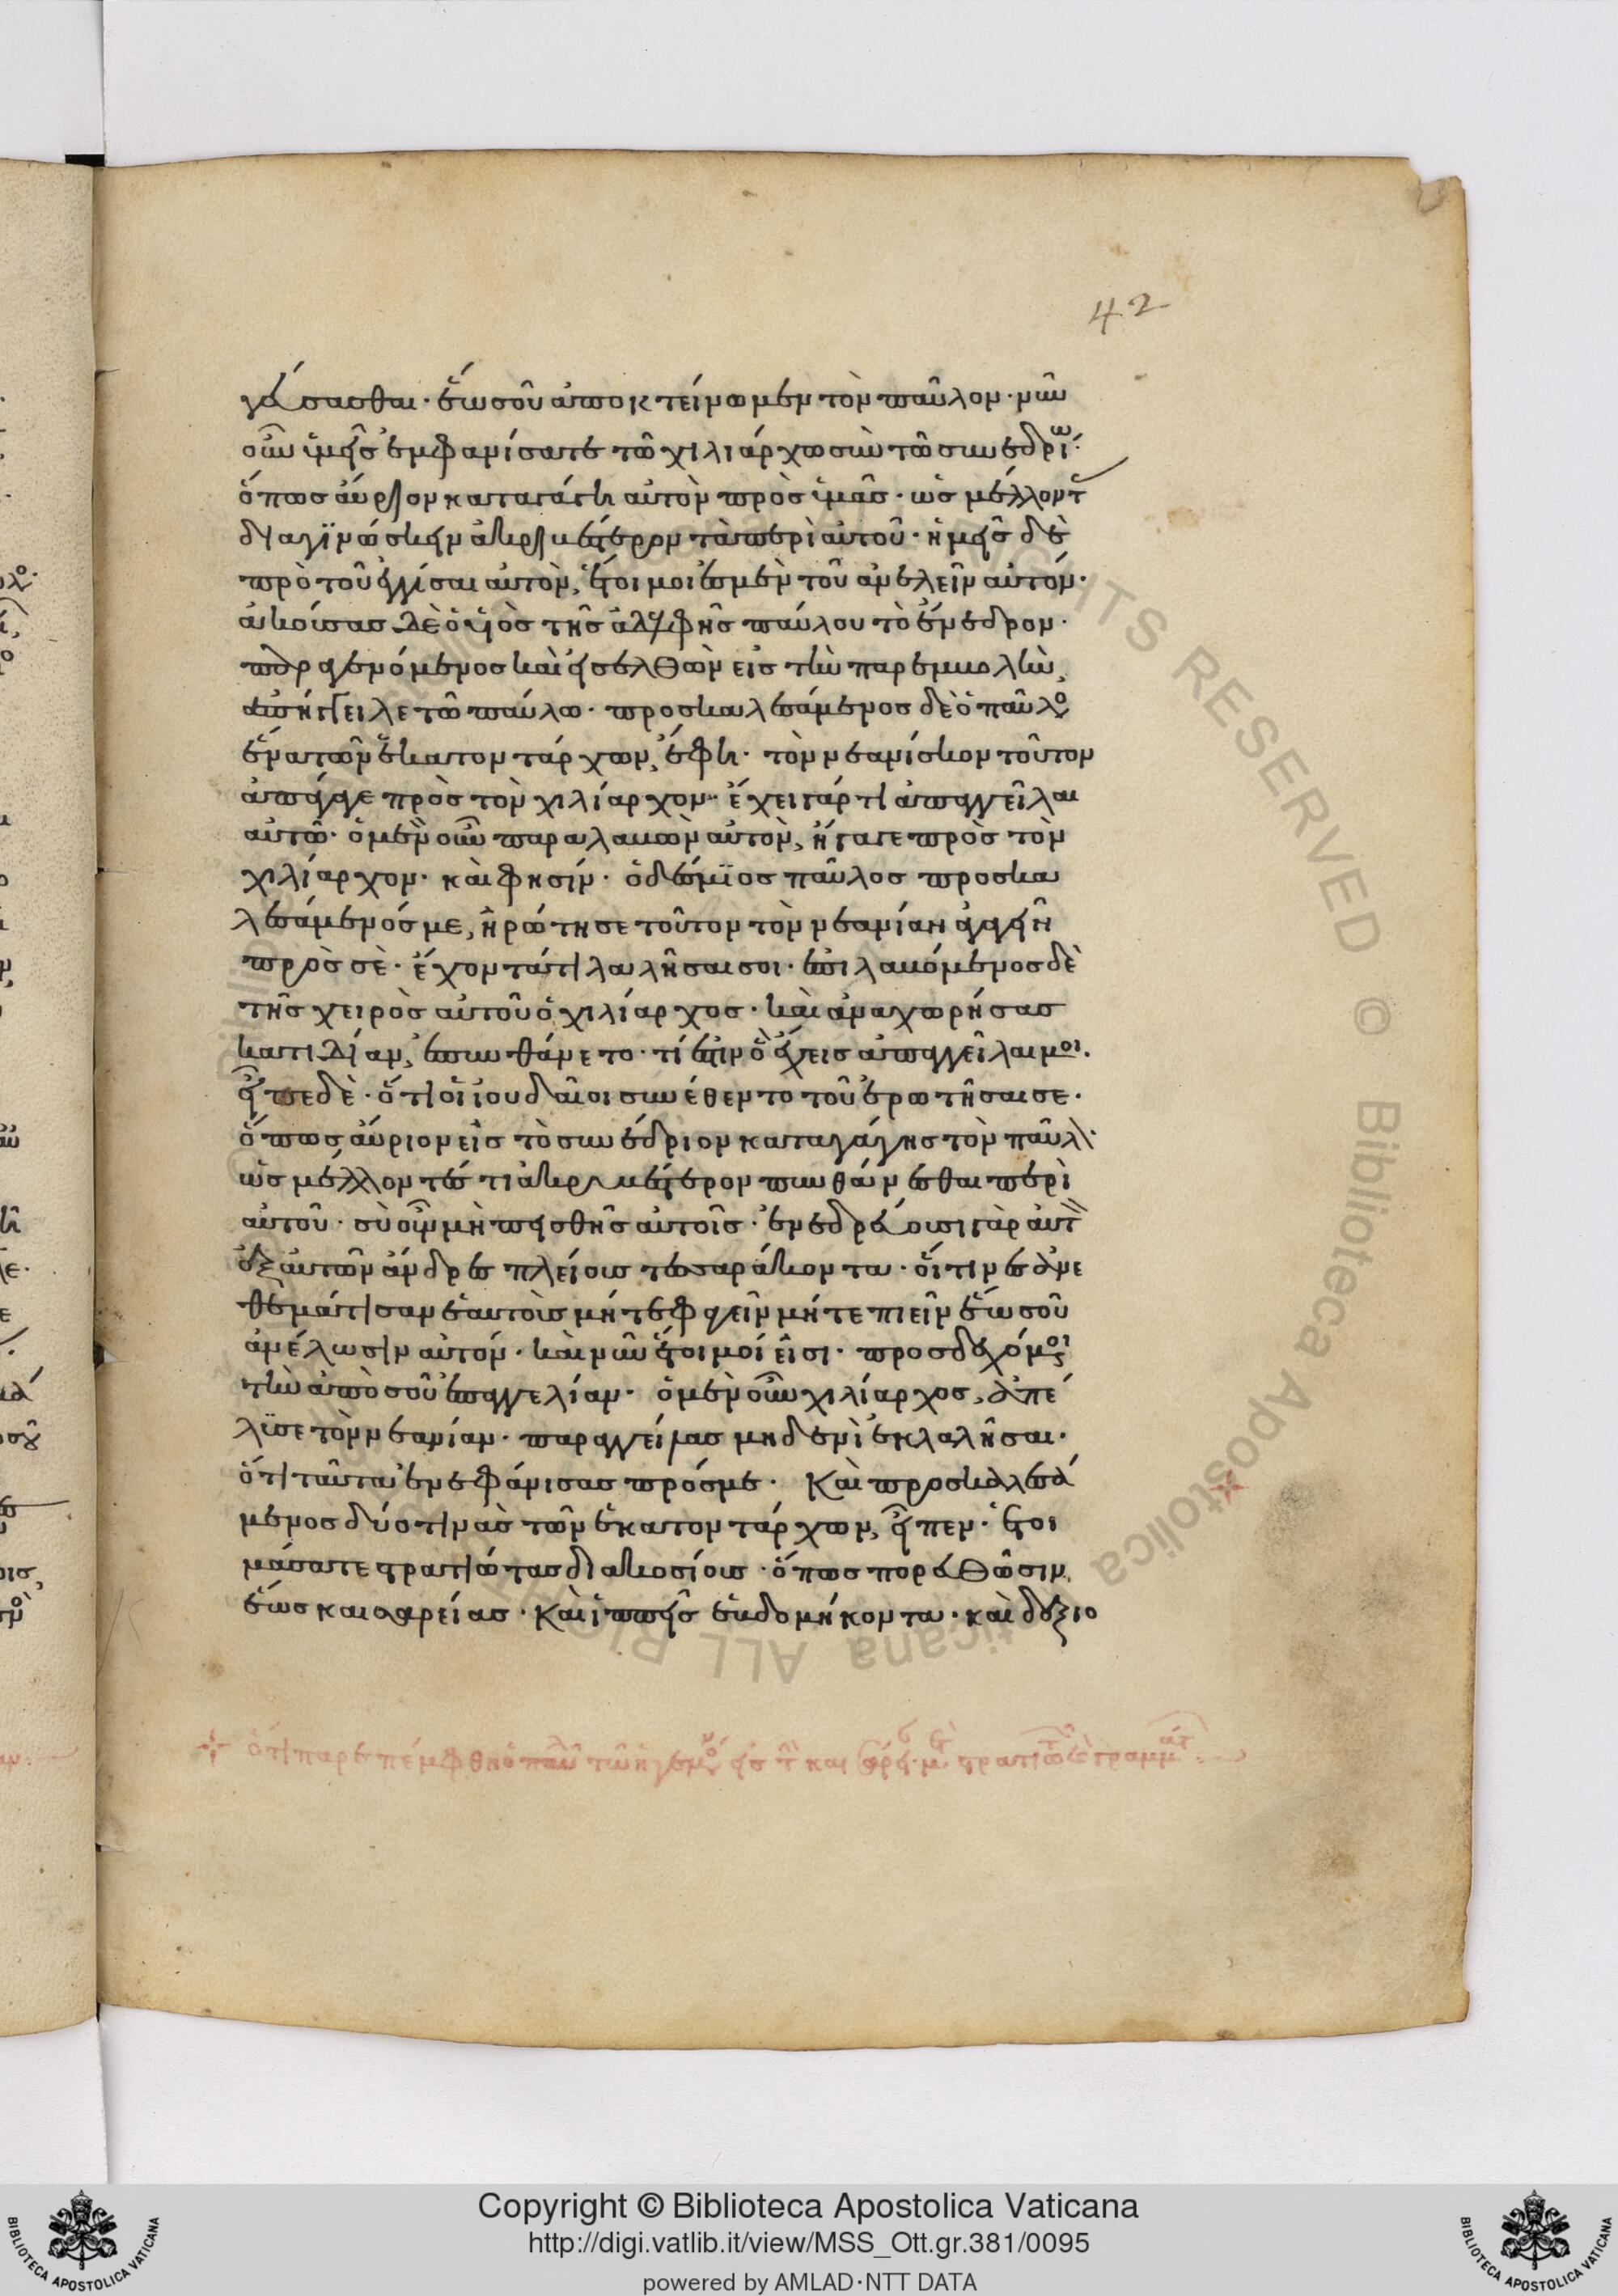 42
γεύσασθαι· ἕως οὗ ἀποκτείνωμεν τὸν παῦλον· νῦν
οὖν ὑμεῖς ἐμφανίσατε τῶ χιλιάρχω σὺν τῶ συνεδρίω·
ὅπως αὔριον καταγάγη αὐτὸν πρὸς ὑμᾶς· ὡς μέλλοντ
διαγϊνώσκειν ἀκριβέστερον τὰ περὶ αὐτοῦ· ἡμεῖς δὲ
πρὸ τοῦ ἐγγίσαι αὐτὸν, ἕτοιμοι ἐσμὲν τοῦ ἀνελεῖν αὐτόν·
ἀκούσας δὲ ὁ υἱὸς τῆς ἀδελφῆς παύλου τὸ ἔνεδρον·
παραγενόμενος καὶ εἰσελθὼν εἰς τὴν παρεμβολὴν,
ἀπήγγειλε τῶ παύλω· προσκαλεσάμενος δὲ ὁ παῦλο
ἕνα τῶν ἑκατοντάρχων, ἔφη· τὸν νεανίσκον τοῦτον
ἀπάγαγε πρὸς τὸν χιλίαρχον· ἔχει γάρ τι ἀπαγγεῖλαι
αὐτῶ· ὁ μὲν οὖν παραλαβὼν αὐτὸν, ἤγαγε πρὸς τὸν
χιλίαρχον· καὶ φησίν· ὁ δέσμϊος παῦλος προσκα
λεσάμενός με, ἠρώτησε τοῦτον τὸν νεανίαν ἀγαγεῖν
πρὸς σὲ· ἔχοντά τι λαλῆσαι σοι· ἐπιλαβόμενος δὲ
τῆς χειρὸς αὐτοῦ ὁ χιλίαρχος· καὶ ἀναχωρήσας
κατιδίαν, ἐπυνθάνετο· τί ἐστιν ὃ ἔχεις ἀπαγγεῖλαι μοι·
εἶπε δὲ· ὅτι οἱ ἰουδαῖοι συνέθεντο τοῦ ἐρωτῆσαι σε·
ὅπως αὔριον εἰς τὸ συνέδριον καταγάγης τὸν παῦλ·
ὡς μέλλοντές τι ἀκριβέστερον πυνθάνεσθαι περὶ
αὐτοῦ· σὺ οὖν μὴ πεισθῆς αὐτοῖς· ἐνεδρεύουσι γὰρ αὐτ
ἐξ αὐτῶν ἄνδρες πλείους τεσσαράκοντα· οἵτινες ἀνε
θεμάτισαν ἑαυτοὺς μήτε φαγεῖν μήτε πιεῖν ἕως οὗ
ἀνέλωσιν αὐτόν· καὶ νῦν ἕτοιμοί εἰσι· προσδεχόμοι
τὴν ἀπὸ σοῦ ἐπαγγελίαν· ὁ μὲν οὖν χιλίαρχος, ἀπέ
λϋσε τὸν νεανίαν· παραγγείλας μηδενὶ ἐκλαλῆσαι·
ὅτι ταῦτα ἐνεφάνισας πρός με· Καὶ προσκαλεσά
μενος δύο τινὰς τῶν ἑκατοντάρχων, εἶπεν· ἑτοι
μάσατε στρατιώτας διακοσίους· ὅπως πορευθῶσιν,
ἕως καισαρείας· Καὶ ἱππεῖς ἑβδομήκοντα· καὶ δεξιο
ὅτι παρεπέμφθη ὁ παῦλ τῶ ἡγεμ εἰς τ και
Copyright © Biblioteca Apostolica Vaticana
http://digi.vatlib.it/view/MSS_Ott.gr.381/0095
powered by AMLAD·NTT DATA